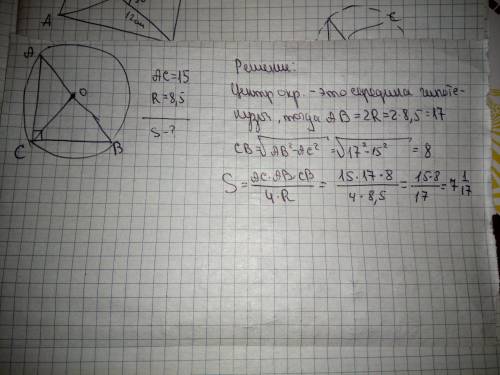 A
12см
C
A
O
C
B
AC=15
R=8,5
S-?
Решение:
Центр окр. - это середина гипоте-
нузы, тогда AB=2R=2·8,5=17
CB=√AB²-AC² =√17²-15² = 8
S= AC·AB·CB / 4·R = 15·17·8 / 4·8,5 = 15·8 / 17 = 7 1/17